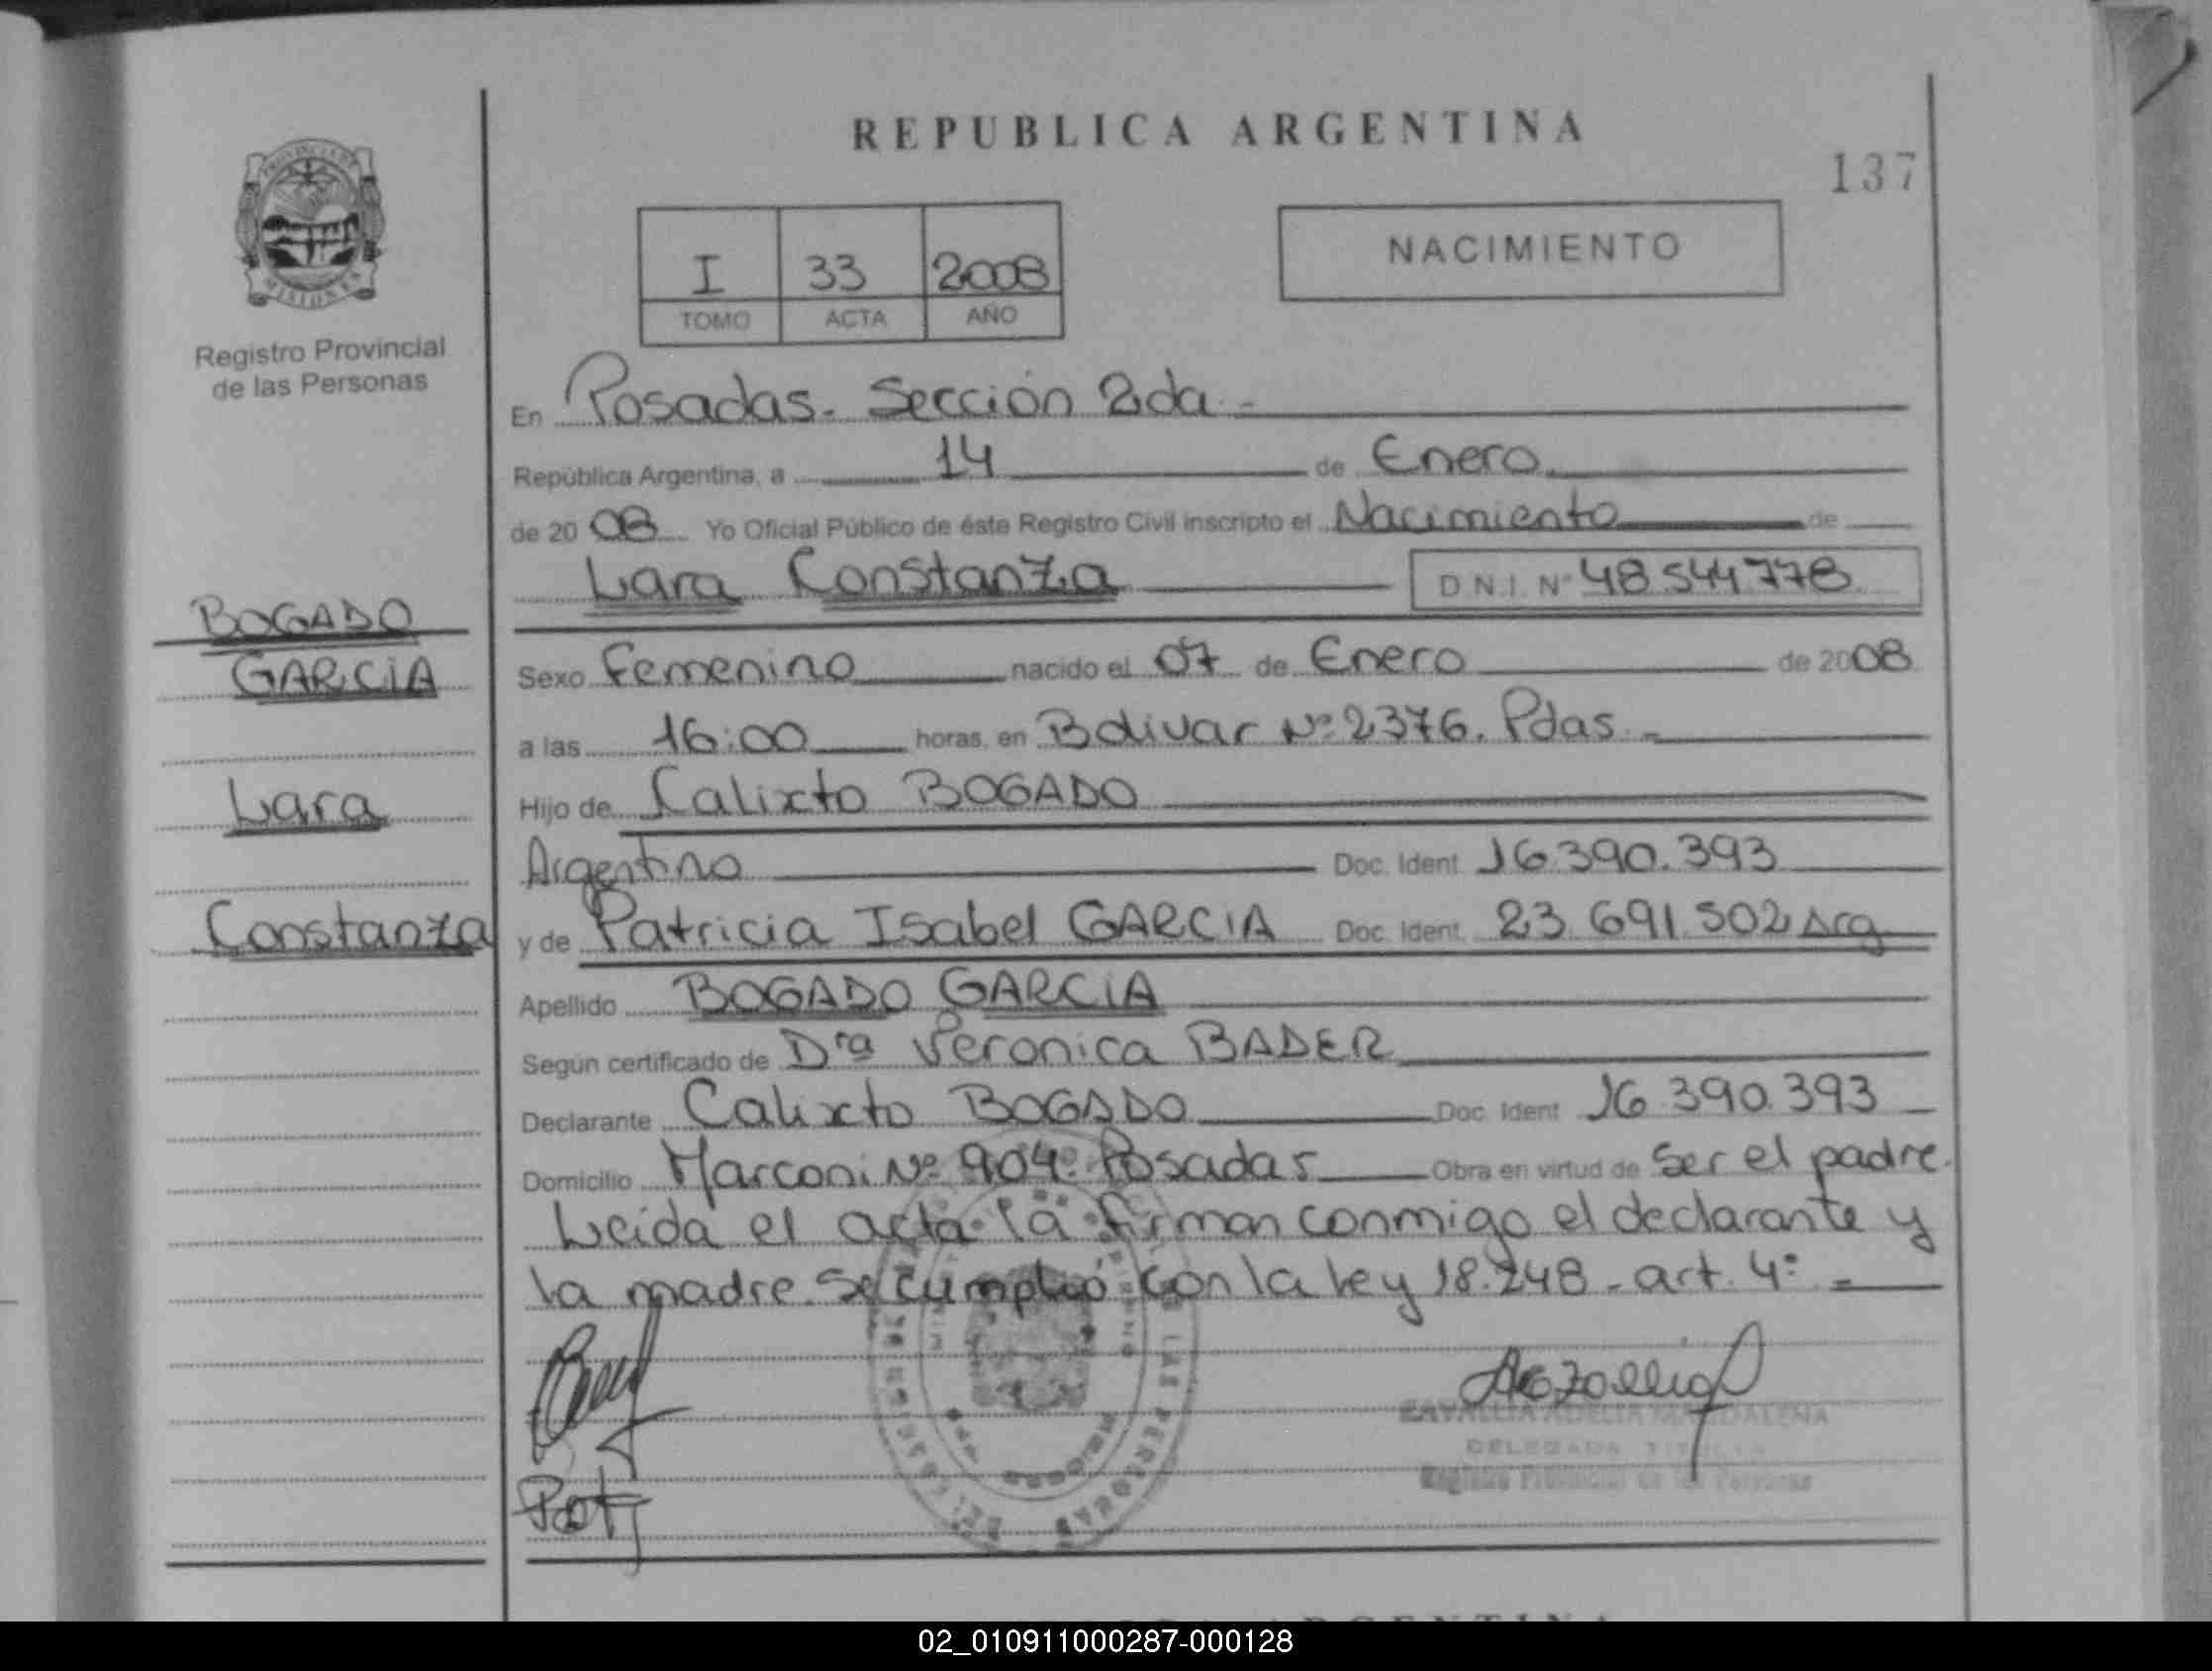 REPUBLICA ARGENTINA
137
PROVINCIA DE
MISIONES
Registro Provincial
de las Personas
I 33 2008
TOMO ACTA AÑO
NACIMIENTO
En Posadas. Sección 2da.-
República Argentina, a 14 de Enero
de 2008 Yo Oficial Público de éste Registro Civil inscripto el Nacimiento de
Lara Constanza D.N.I. Nº 48.544.778
BOGADO
GARCIA
Lara
Constanza
Sexo Femenino nacido el 07 de Enero de 2008
a las 16:00 horas, en Bolivar Nº 2376. Pdas.-
Hijo de Calixto BOGADO
Argentino Doc. Ident 16.390.393
y de Patricia Isabel GARCIA Doc. Ident. 23.691.502 Arg
Apellido BOGADO GARCIA
Según certificado de Dra Veronica BADER
Declarante Calixto BOGADO Doc. Ident 16.390.393
Domicilio Marconi Nº 904. Posadas Obra en virtud de ser el padre.
Leida el acta la firman conmigo el declarante y
la madre. Se cumplió con la Ley 18.248 - art. 4º -
Pat
LAS PERSONAS
ADELIA MAGDALENA
DELEGADA TITULAR
Registro Provincial de las Personas
02_010911000287-000128